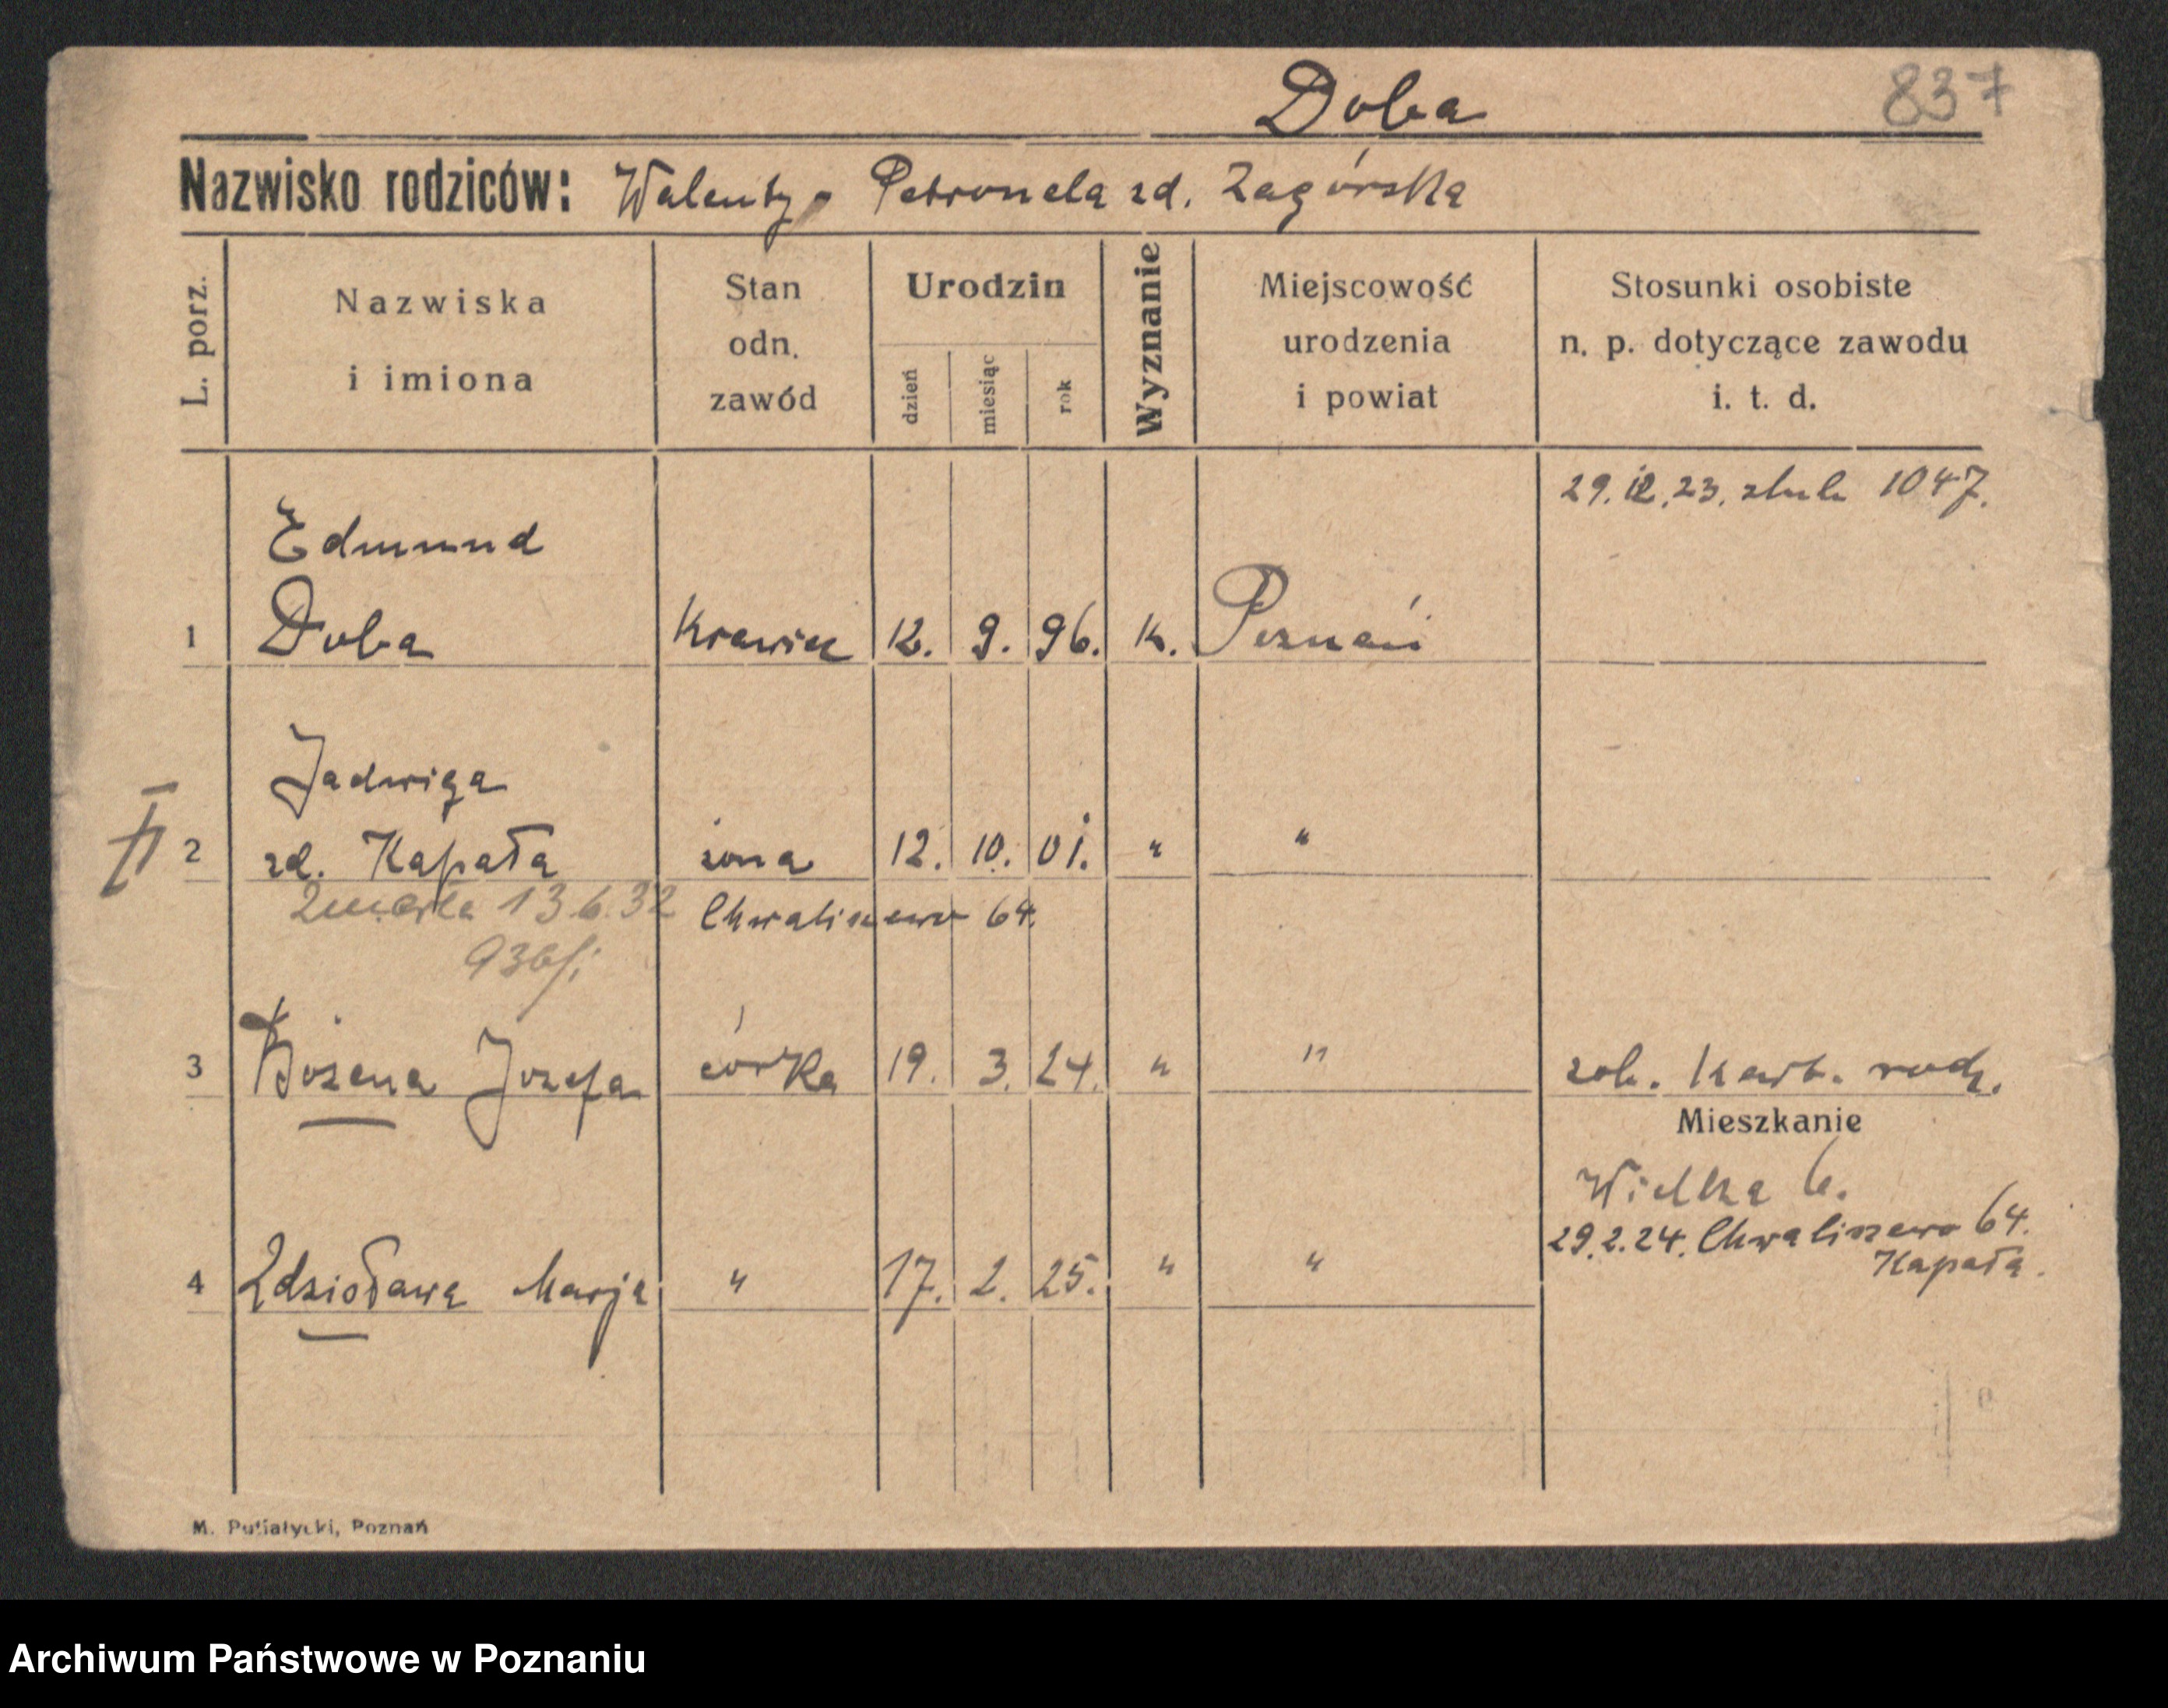 Doba
837
Nazwisko rodziców: Walenty, Petronela zd. Zagórska
L. porz.
Nazwiska
i imiona
Stan
odn.
zawód
Urodzin
dzień
miesiąc
rok
Wyznanie
Miejscowość
urodzenia
i powiat
Stosunki osobiste
n. p. dotyczące zawodu
i. t. d.
29. 12. 23. slub 1047.
Edmund
1 Doba Krawiec 12. 9. 96. K. Poznań
Jadwiga
2 zd. Kapała żona 12. 10. 01. " "
Zmarła 13.6.32 Chwaliszewo 64.
3 Bożena Jozefa córka 19. 3. 24. " " zob. Kart. rodz.
Mieszkanie
Wielka 6.
29.2.24. Chwaliszewo 64.
Kapała.
4 Zdzisława Marja " 17. 2. 25. " "
M. Putiatycki, Poznań
Archiwum Państwowe w Poznaniu